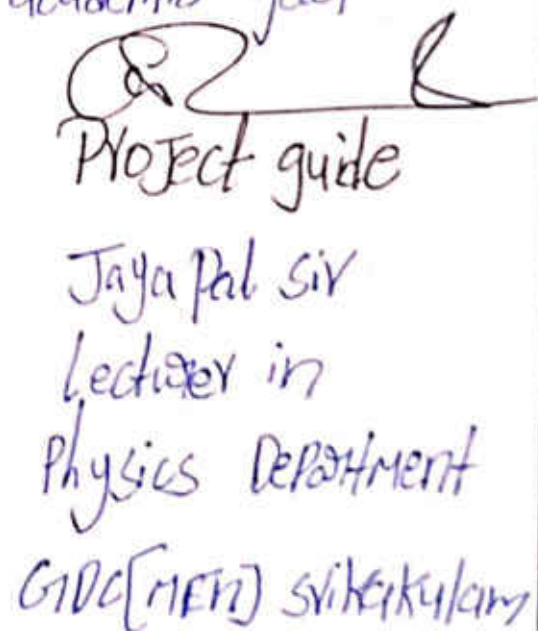 academic year
Project guide
Jaya Pal sir
Lecturer in
Physics Department
GDC[MEN] srikakulam